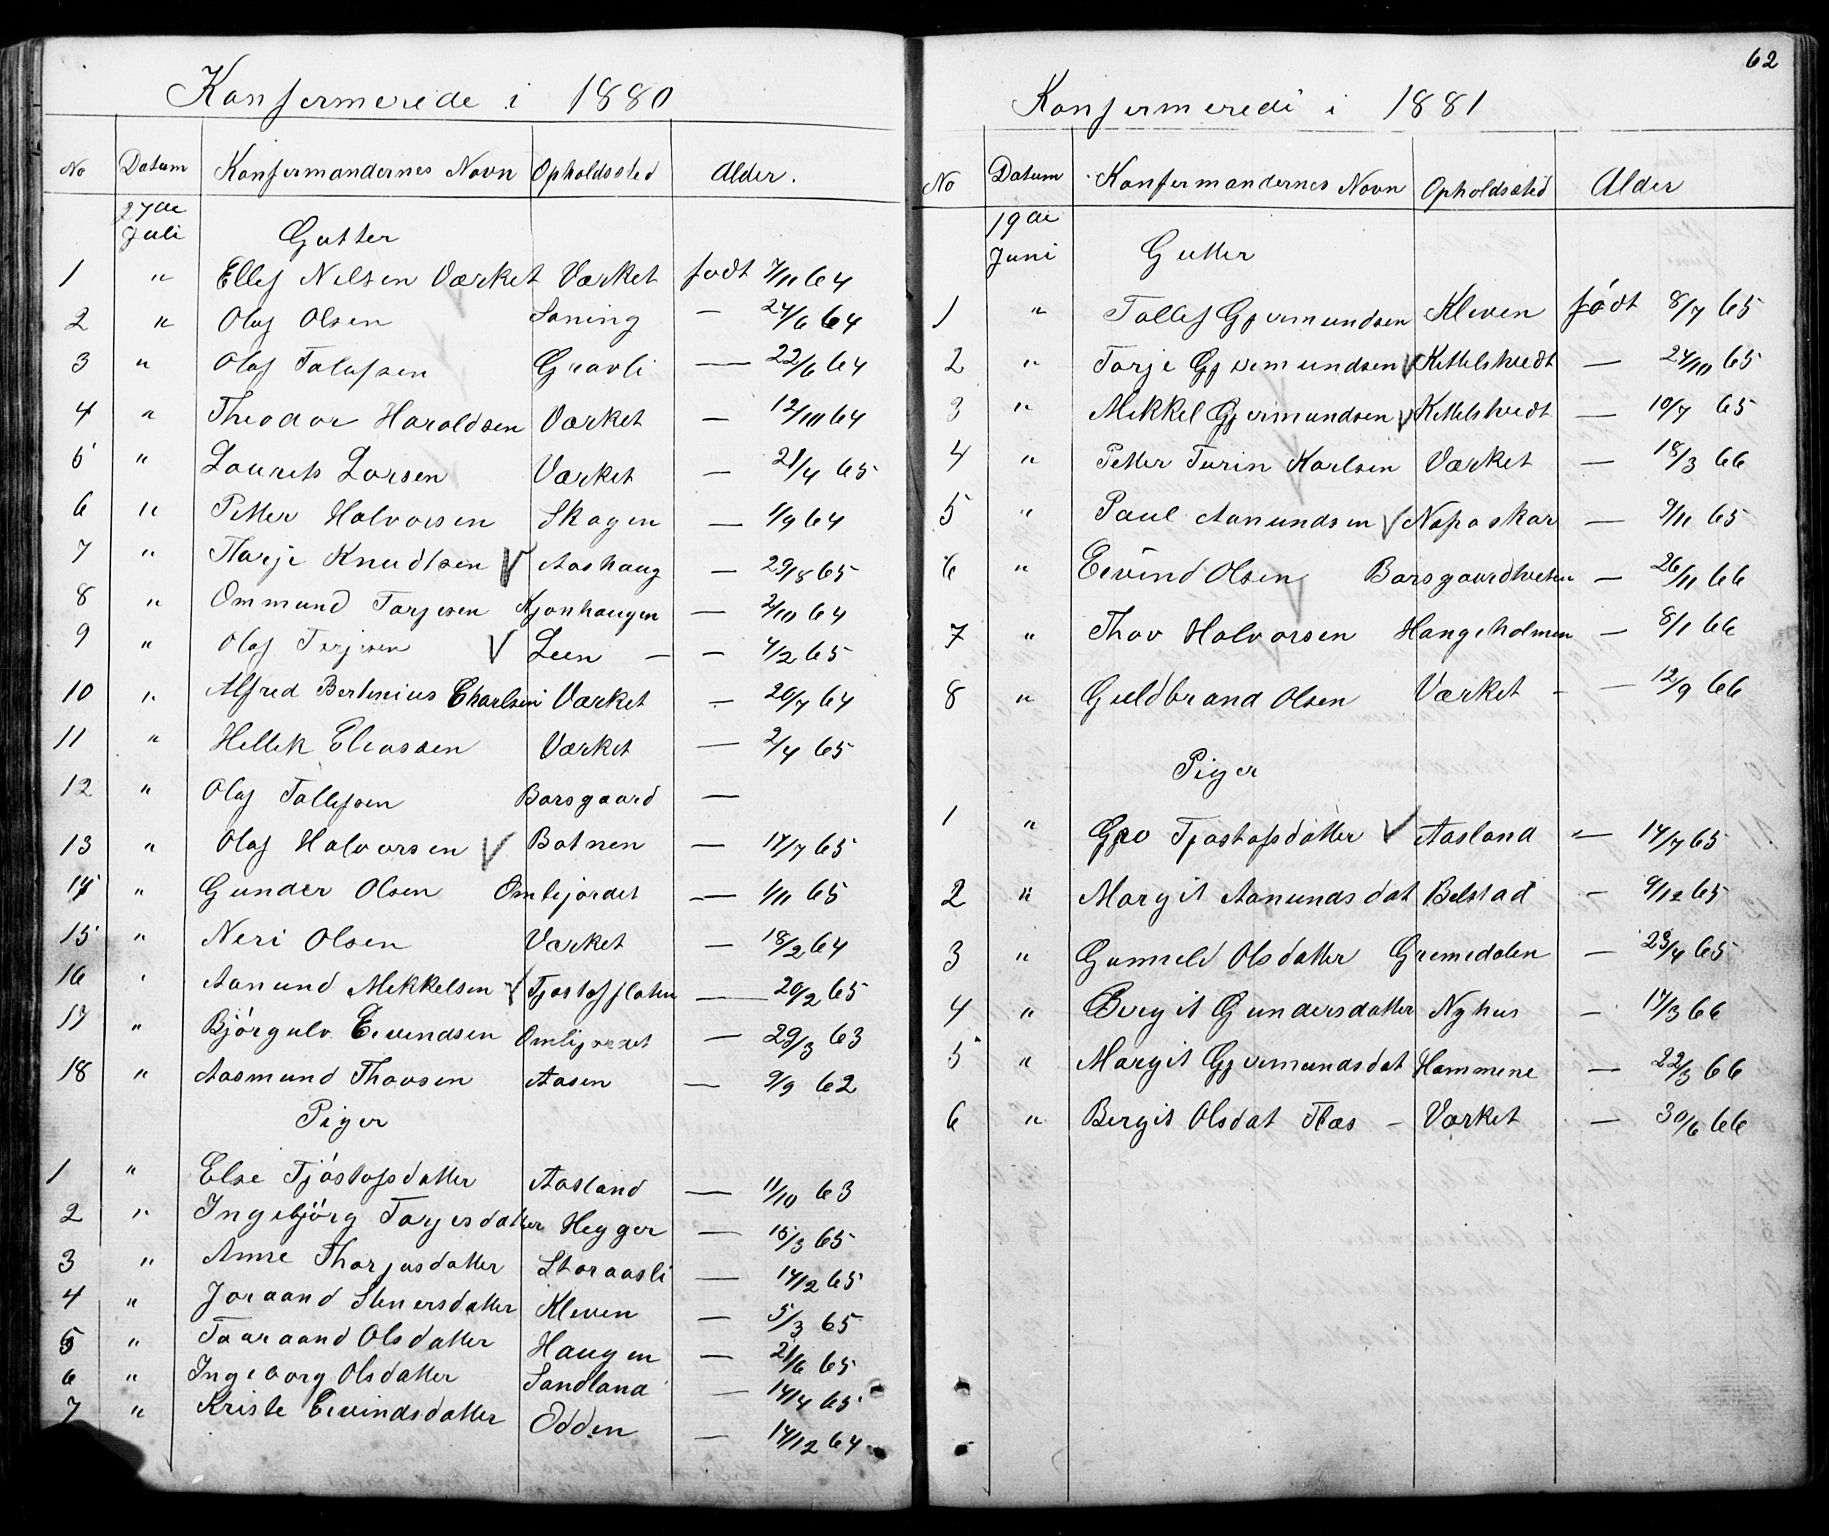 Konfermerede i 1880
No Datum Konfermandernes Navn Opholdssted Alder.
27de Juli Gutter
1 " Ellef Nilsen Værket Værket født 7/11 64
2 " Olaf Olsen Soning — 24/6 64
3 " Olaf Tolofsen Gravli — 22/6 64
4 " Theodor Haroldsen Værket — 12/10 64
5 " Laurits Larsen Værket — 21/4 65
6 " Petter Halvorsen Skogen — 1/9 64
7 " Tarje Knudtsen V Aashaug — 29/8 65
8 " Ommund Torjesen Kjonhaugen — 2/10 64
9 " Olaf Terjesen V Leen — — 4/2 65
10 " Alfred Bertinius Charlsen Værket — 20/7 64
11 " Hellek Eliassen Værket — 2/4 65
12 " Olaf Tollefsen Borsgaard —
13 " Olaf Halvorsen V Botnen — 17/7 65
14 " Gunder Olsen Omlijordet — 1/11 65
15 " Neri Olsen Værket — 18/2 64
16 " Aanund Mikkelsen V Tjostofflaten — 20/2 65
17 " Bjørgulv Eivindsen Omlijordet — 29/3 63
18 " Aasmund Thovsen Aasen — 9/9 62
Piger
1 " Else Tjøstofsdatter Aasland — 11/10 63
2 " Ingebjörg Torjesdatter Hegger — 15/3 65
3 " Anne Thorjusdatter Storaasli — 14/2 65
4 " Joraand Stenersdatter Kleven — 5/3 65
5 " Taaraand Olsdatter Haugen — 21/6 65
6 " Ingeborg Olsdatter Sandland — 14/4 65
7 " Kriste Eivindsdatter Odden — 14/12 64
62
Konfermerede i 1881
No Datum Konfermandernes Navn Opholdssted Alder
19de
Juni Gutter
1 " Tollef Gjermundsen Kleven født 8/7 65
2 " Torje Gjermundsen V Kittelstvedt — 24/10 65
3 " Mikkel Gjermundsen V Kittelstvedt — 10/7 65
4 " Petter Turin Karlsen Værket — 18/3 66
5 " Paul Aanundsen V Napaskar — 9/11 65
6 " Eivind Olsen Borsgaardtveten — 26/11 66
7 " Thov Halvorsen Hangeholmen — 8/1 66
8 " Guldbrand Olsen Værket - — 12/9 66
Piger
1 " Gro Tjostofsdatter V Aasland — 14/7 65
2 " Margit Aanundsdat Belstad — 9/12 65
3 " Gunneld Olsdatter Grimedalen — 23/4 65
4 " Bergit Gundersdatter Nyhus — 17/3 66
5 " Margit Gjermundsdat Hommene — 22/3 66
6 " Bergit Olsdat Næs - Værket — 30/6 66